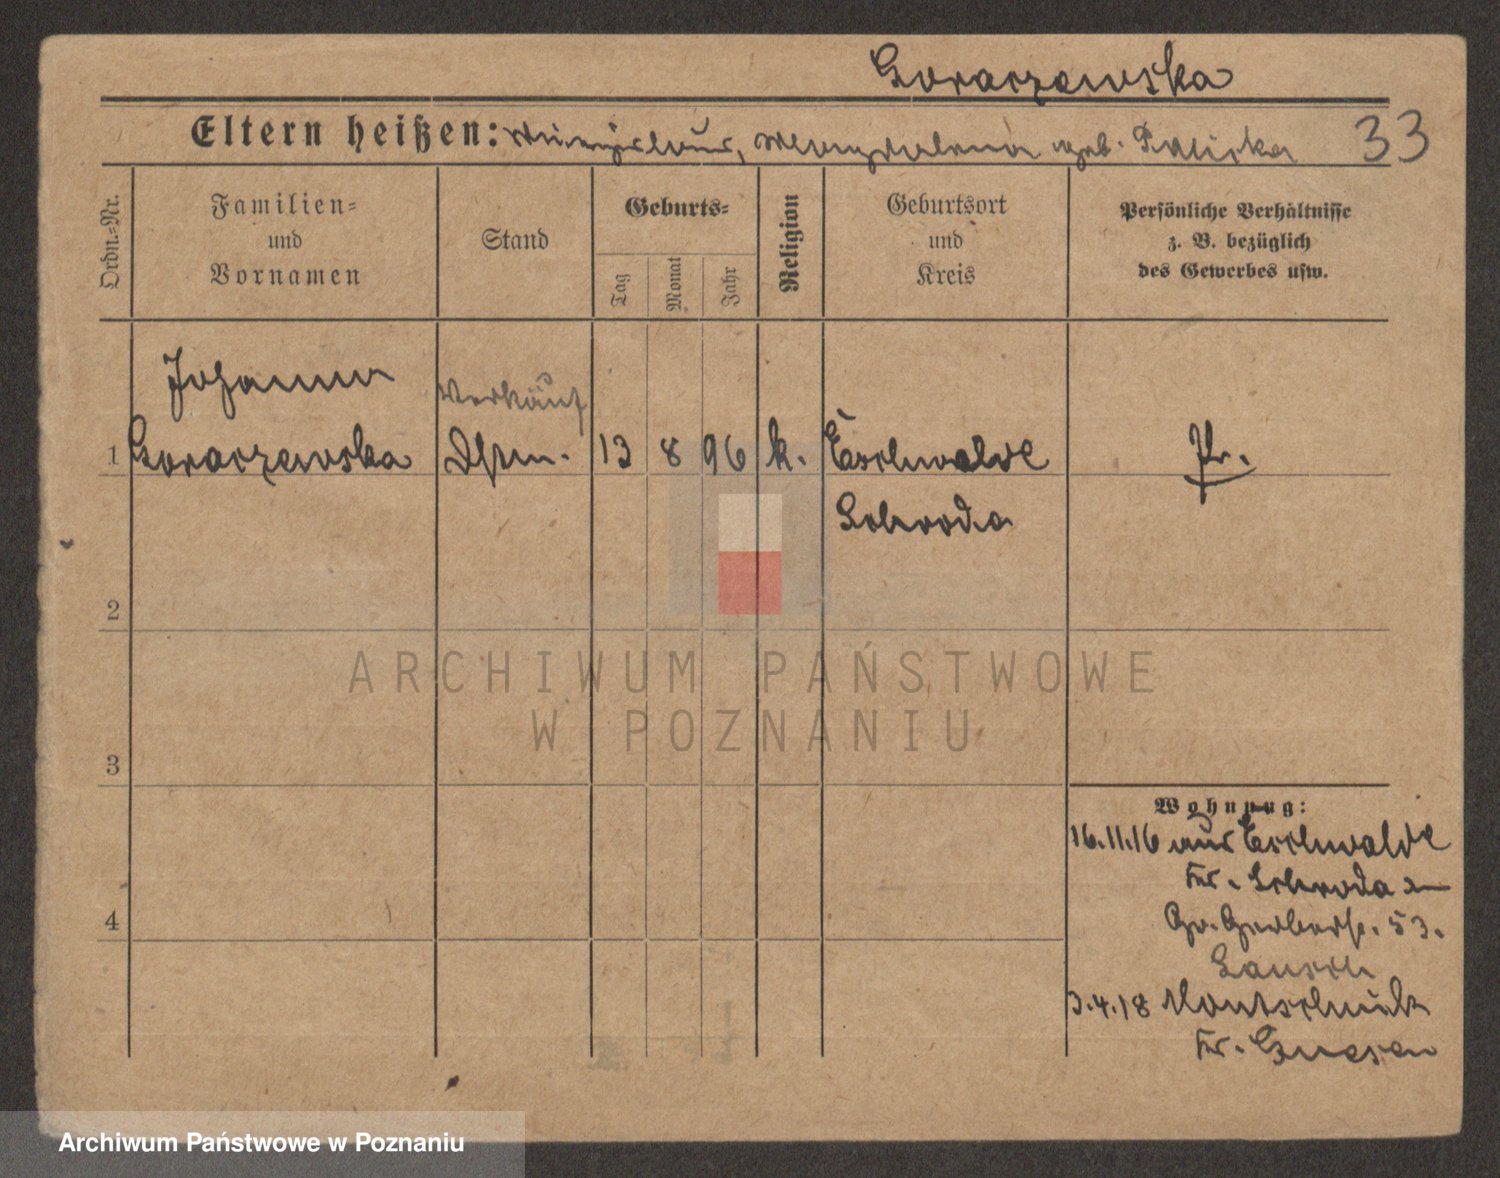 Goraczewska
Eltern heißen: Stanislaus, Magdalena geb. Paliska 33
Ordn.-Nr.
Familien-
und
Vornamen
Stand
Geburts-
Tag
Monat
Jahr
Religion
Geburtsort
und
Kreis
Persönliche Verhältnisse
z. B. bezüglich
des Gewerbes usw.
Johanna
Verkäuf
1 Goraczewska 13 8 96 k. Eschwalde Pr.
Schroda
2
3
4
Wohnung:
16.11.16 aus Eschwalde
Kr. Schroda
Gr. Gerberstr. 53.
3.4.18
Kr. Gnesen
ARCHIWUM PAŃSTWOWE
W POZNANIU
Archiwum Państwowe w Poznaniu